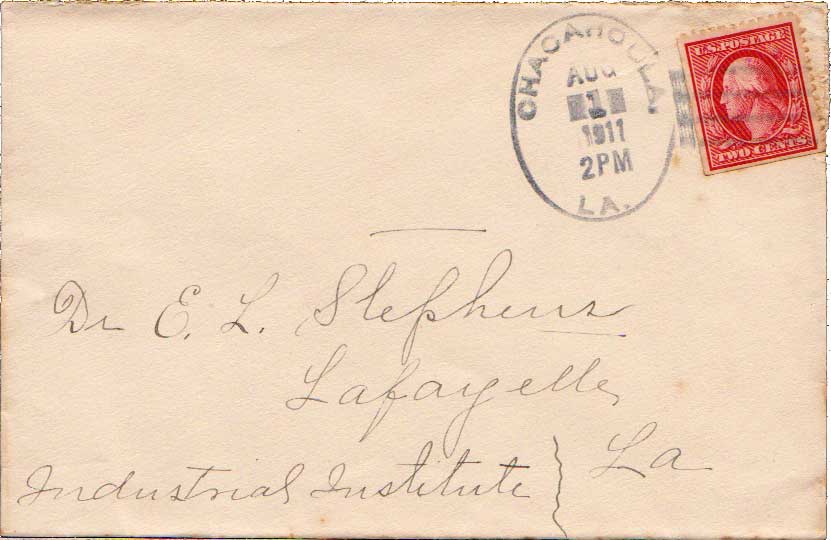 CHACAHOULA,
AUG
1
1911
2PM
LA.
U.S. POSTAGE
TWO CENTS
Dr E. L. Stephens
Lafayette,
La
Industrial Institute